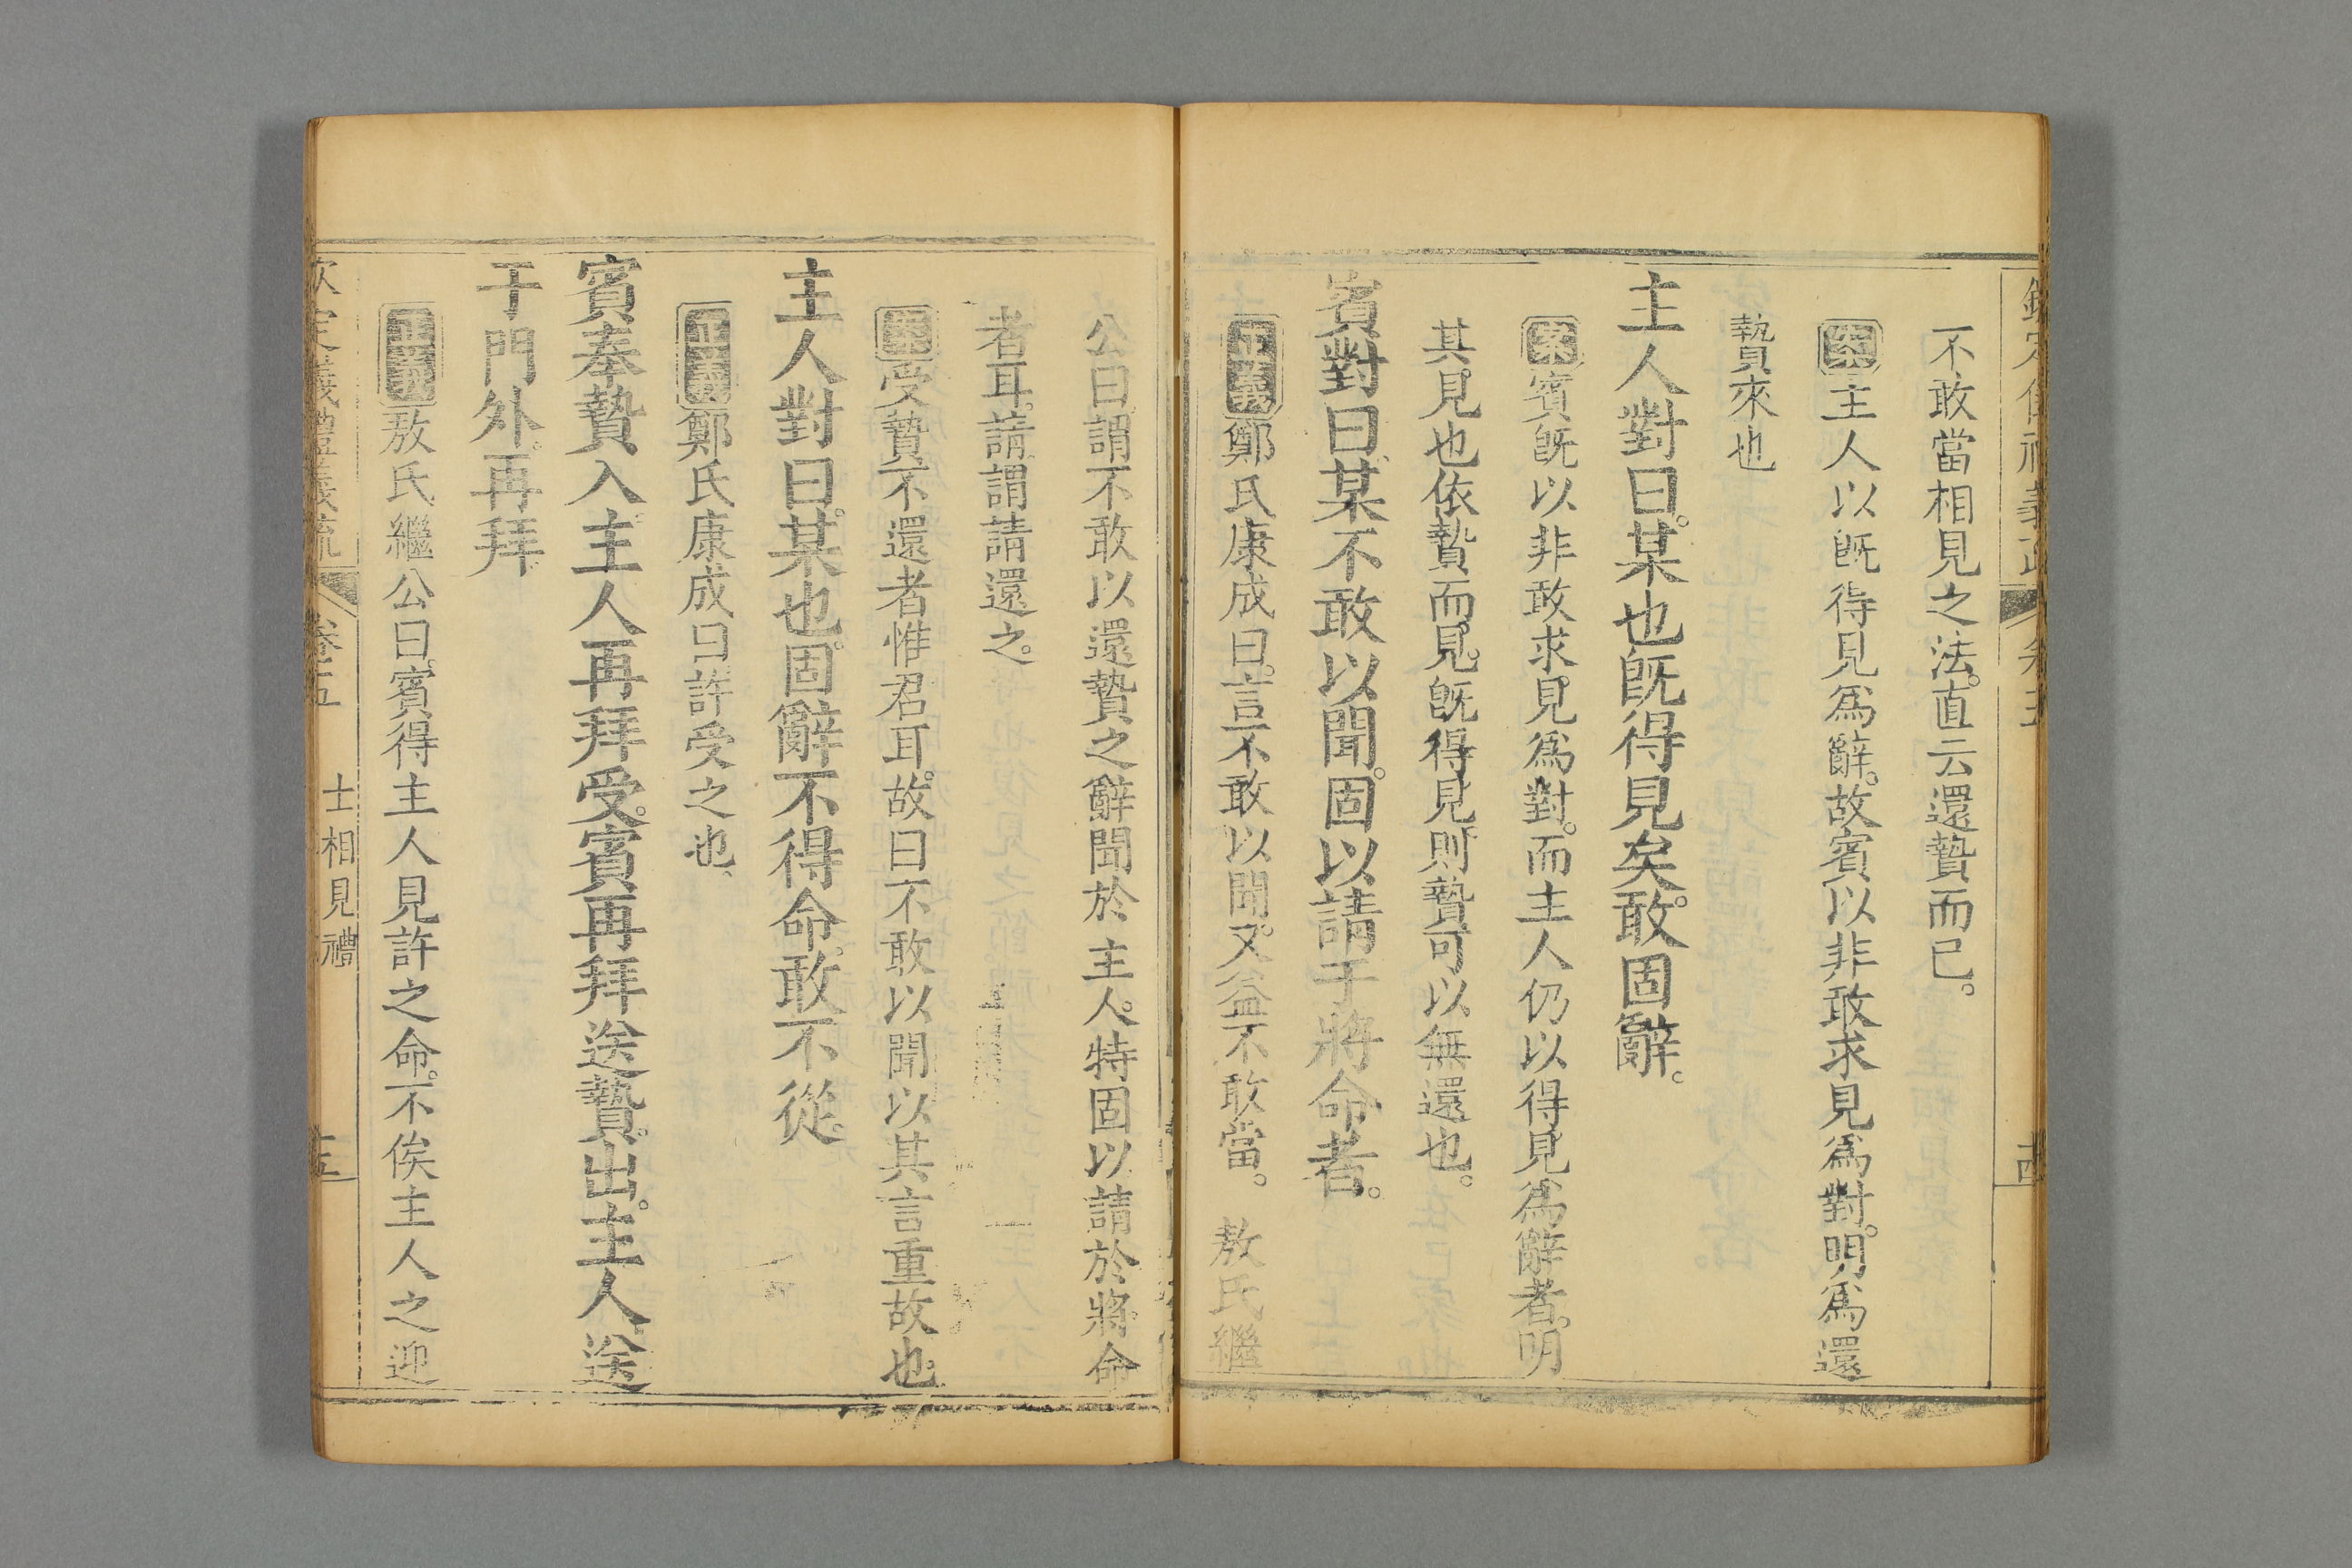 不敢當相見之法。直云還贄而已。
案主人以旣得見爲辭。故賓以非敢求見爲對。明爲還
贄來也
主人對曰。某也旣得見矣。敢固辭。
案賓旣以非敢求見爲對。而主人仍以得見爲辭者。明
其見也依贄而見。旣得見則贄可以無還也。
賓對曰。某不敢以聞。固以請于將命者。
正義鄭氏康成曰。言不敢以聞。又益不敢當。 敖氏繼
公曰謂不敢以還贄之辭聞於主人。特固以請於將命
者耳。請謂請還之。
案受贄不還者惟君耳。故曰不敢以聞以其言重故也。
主人對曰。某也。固辭不得命。敢不從。
正義鄭氏康成曰許受之也。
賓奉贄入主人再拜受。賓再拜送贄。出。主人送
于門外。再拜
正義敖氏繼公曰。賓得主人見許之命。不俟主人之迎
欽定義禮義疏 卷五 士相見禮 十五